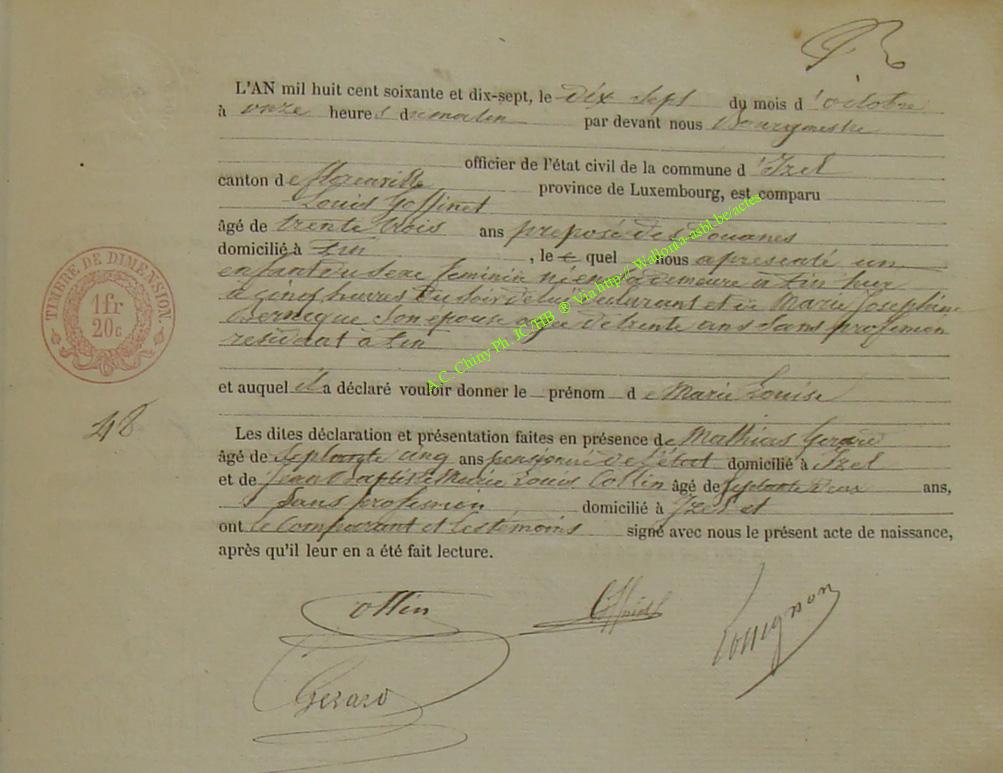 L'AN mil huit cent soixante et dix-sept, le dix sept du mois d'octobre
à onze heures du matin par devant nous Bourgmestre
officier de l'état civil de la commune d'Izel
canton de Florenville province de Luxembourg, est comparu
Louis Goffinet
âgé de trente trois ans preposé des Douanes
domicilié à , le quel nous a presenté un
enfant du sexe feminin né en sa demeure a
a cinq heures du soir de lui declarant et de Marie Josephine
son epouse agée de trente ans sans profession
residant a
et auquel il a déclaré vouloir donner le prénom de Marie Louise
Les dites déclaration et présentation faites en présence de Mathias Gerard
âgé de Septante cinq ans pensionné de l'état domicilié à Izel
et de Jean Baptiste Marie Louis Collin âgé de Septante deux ans,
sans profession domicilié à Izel et
ont le Comparant et les témoins signé avec nous le présent acte de naissance,
après qu'il leur en a été fait lecture.
TIMBRE DE DIMENSION
1 fr
20 c
48
Collin
Gerard
A.C. Chiny Ph. JC/HB ® Via http:// Wallonia-asbl.be/actes